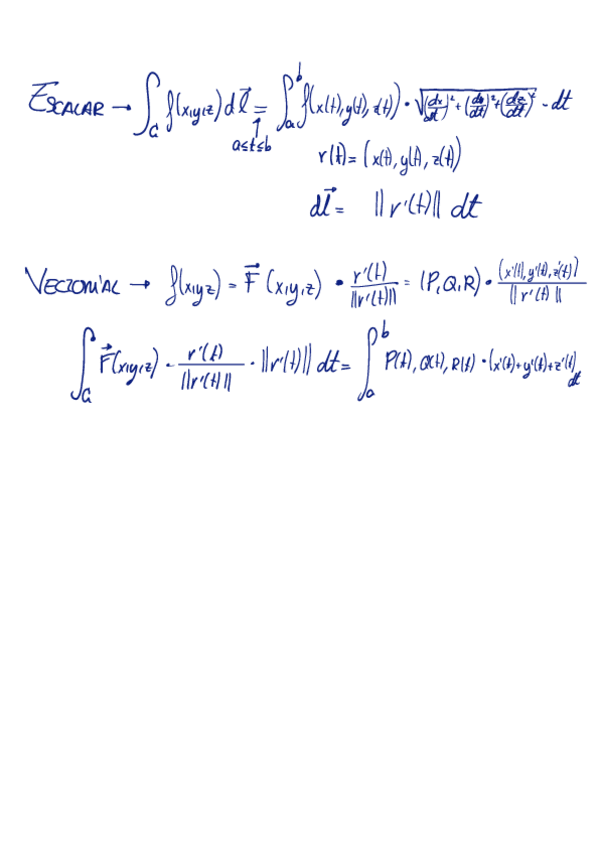 ESCALAR → ∫_C f(x,y,z) d\vec{l} = ∫_a^b f(x(t), y(t), z(t)) · √((dx/dt)² + (dy/dt)² + (dz/dt)²) · dt
↑
a≤t≤b
r(t) = (x(t), y(t), z(t))
d\vec{l} = ||r'(t)|| dt
VECTORIAL → f(x,y,z) = \vec{F}(x,y,z) · r'(t)/||r'(t)|| = (P,Q,R) · (x'(t), y'(t), z'(t))/||r'(t)||
∫_C \vec{F}(x,y,z) · r'(t)/||r'(t)|| · ||r'(t)|| dt = ∫_a^b P(t), Q(t), R(t) · (x'(t)+y'(t)+z'(t)) dt